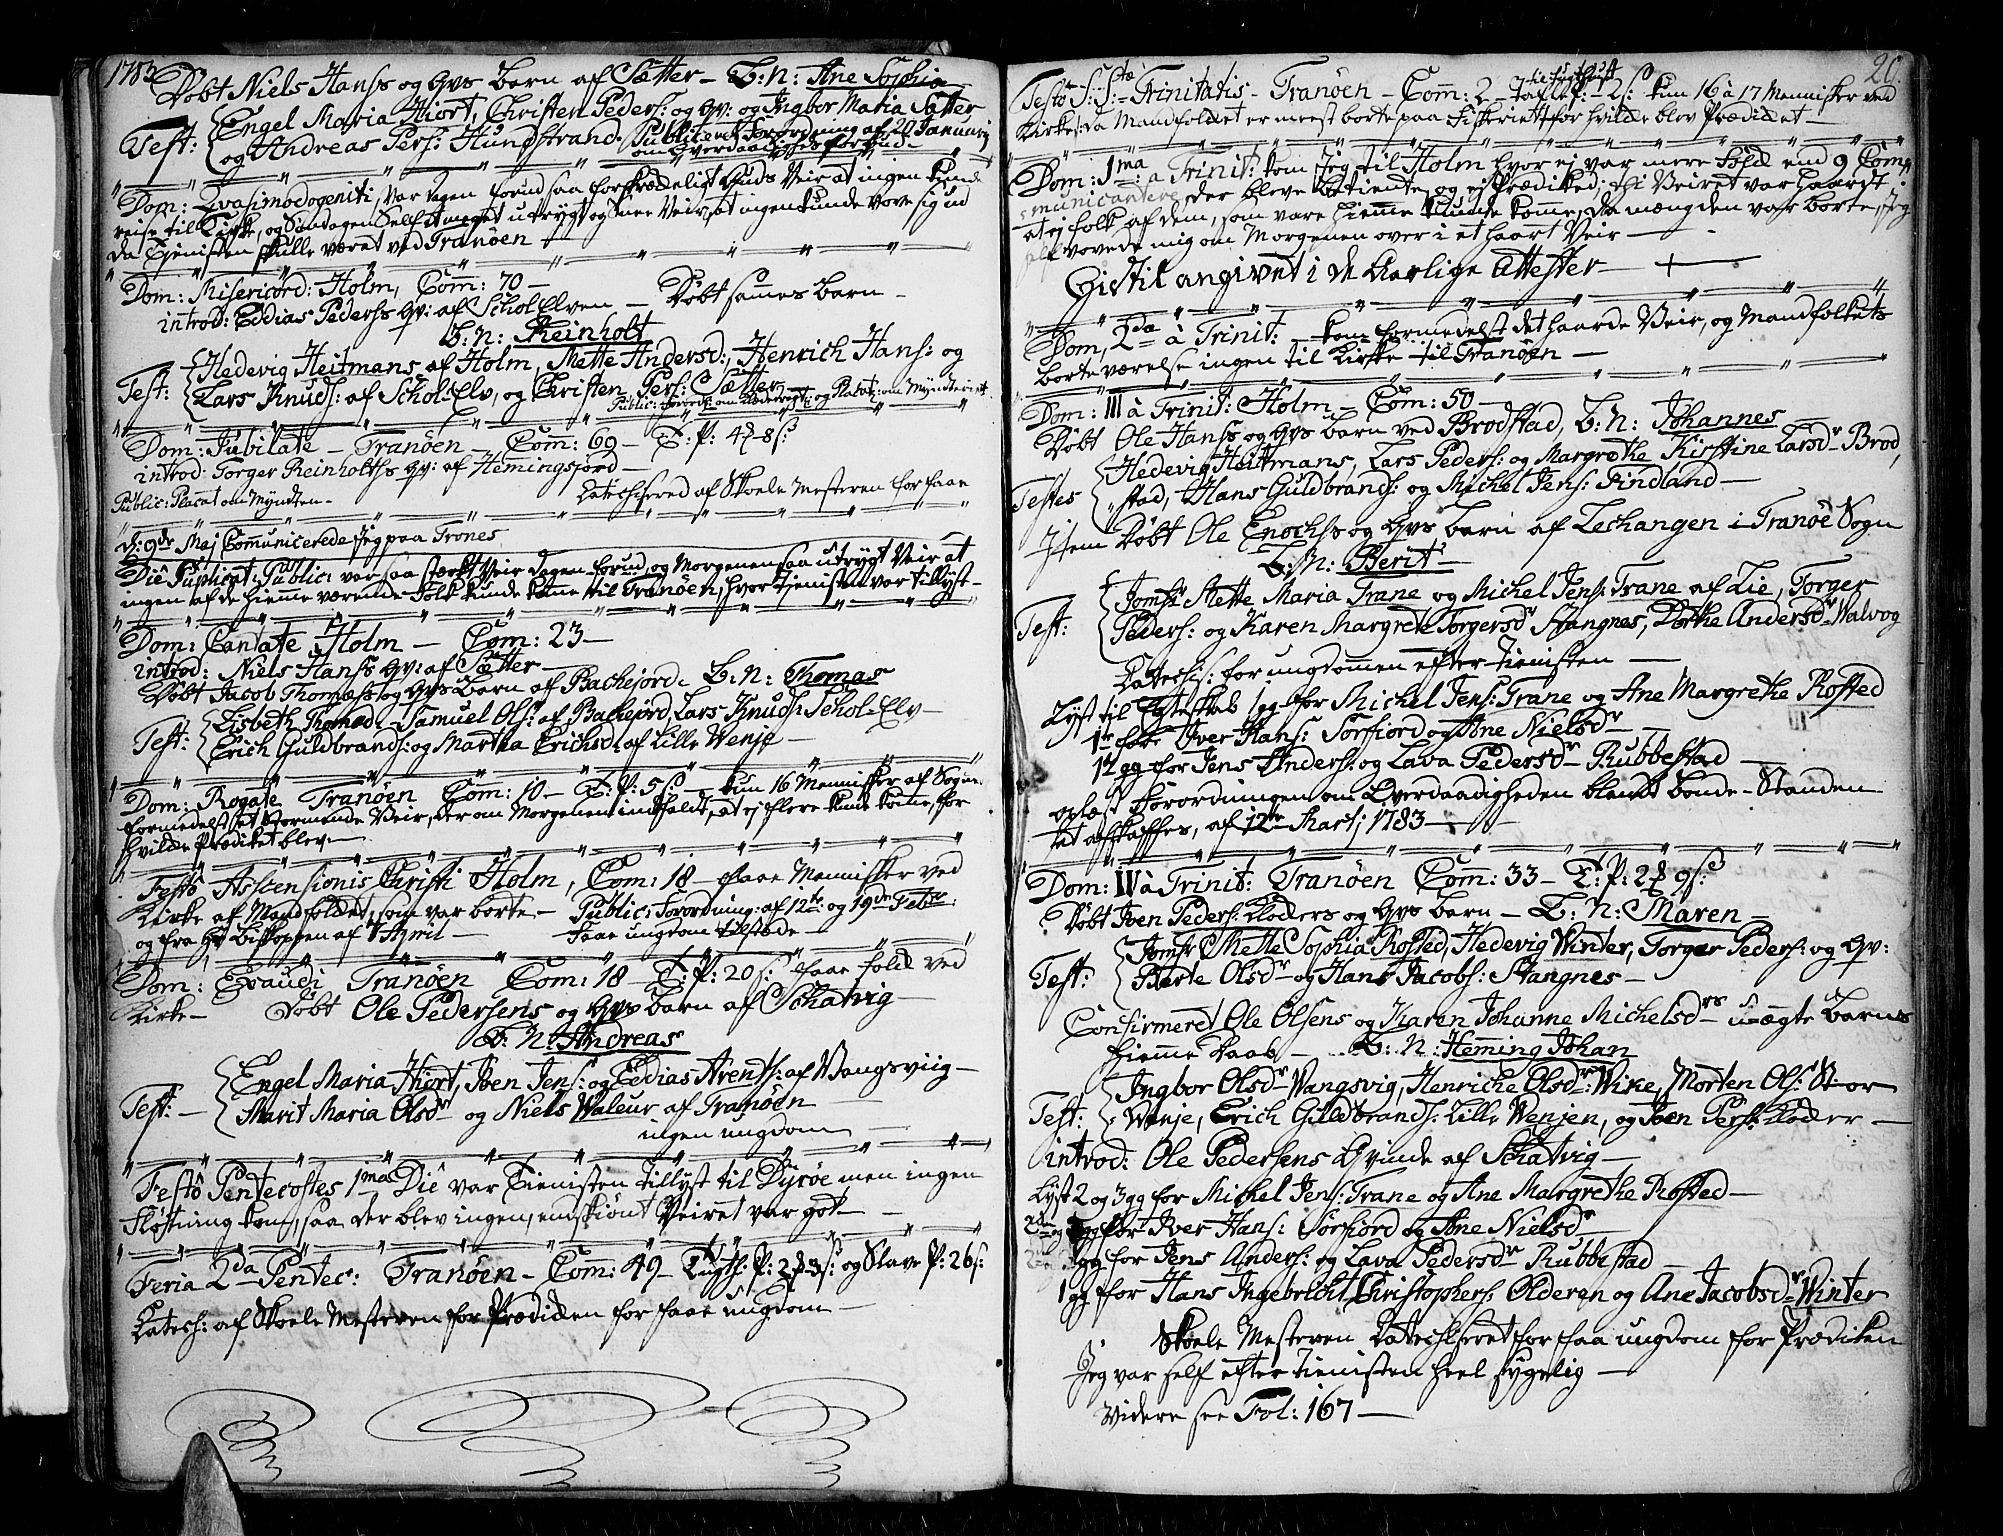 1783
Døbt Niels Hans's og Hvs Barn af Sætter – B: N: Ane Sophia
Engel Maria Hiort, Christen Peders: og Hv: og Ingbor Maria Sætter
Test: og Andreas Pers: Hundstrand. Publiceret Forordning af 20 Januarij
om Overdaadighed
Dom: Qvasimodogeniti, var dagen forud saa forskrækkeligt Guds Veir at ingen kunde
reise til Kirke, og Søndagen Self et meget utrygt og Snee Veir, at ingen kunde vove sig ud
da Tienisten skulle været ved Tranöen
Dom: Misericord: Holm, Com: 70 –
introd: Eddias Peders's Hv: af Schol Elven – Døbt sammes Barn –
B: N: Reinholt
Hedevig Heitmans af Holm, Mette Andersd:, Henrich Hans: og
Test: Lars Knuds: af Schol-Elv, og Christen Pers: Sætter
Public: Forordn: om og Placat: om Myndteriet
Dom: Jubilate – Tranöen – Com: 69 – T: P: 4 – 8 s:
introd: Torger Reinholths Hv: af Hemingsjord –
Public: Placat om Myndten – Catechisered af Skole Mesteren for faae
d: 9de Maj Communicerede jeg paa Trones
Die Suplicat: Public: var saa stærkt Veir dagen forud, og Morgenen saa utrygt Veir at
ingen af de hiemme værende Folk kunde kome til Tranöen, hvor Tjenisten var tillyst –
Dom: Cantate Holm – Com: 23 –
introd: Niels Hans's Hv: af Sætter –
Døbt Jacob Thomæs's og Hvs Barn af Backejord – B: N: Thomas
Lisbeth Thomæd: – Samuel Ols: af Backejord, Lars Knuds: Schol-Elv –
Test: Erich Guldbrands: og Martha Erichsd: af Lille Wenje –
Dom: Rogate Tranöen Com: 10 – T: P: 5 s: – kun 16 Mennisker af Sogne:
formedelst et stormende Veir, der om Morgenen indfaldt, at ej flere kunde kome, for
hvilcke Prædiket blev –
Festo Ascensionis Christi Holm, Com: 18 – faae Mennisker ved
Kirke af Mandfolcket, som var borte – Public: Forordning: af 12te: og 19de Febr:
og fra Hr Biskoppen af 7 April – faae ungdom tilstæde –
Dom: Exaudi Tranöen Com: 18 T: P: 20 s: faae folck ved
Kirke – Døbt Ole Pedersens og Hvs Barn af Schatvig –
B: N: Andreas
Engel Maria Hiort, Iven Jens: og Eddias Arents: af Vangsviig –
Test: – Marit Maria Olsdr og Niels Waleur af Tranöen –
ingen ungdom –
Festo Pentecostes 1ma Die var Tienisten tillyst til Dyröe men ingen
Fløttning kom, saa der blev ingen, endskiønt Veiret var got –
Feria 2da Pentec: Tranöen – Com: 49 – Tugth: P: 2 3 s: og Slave P: 26 s:
Catech: af Skoele Mesteren for Prædicken for faae ungdom –
20.
Festo S: S:tæ Trinitatis – Tranöen – Com: 2 – – 2 s: kun 16 à 17 Mennisker ved
Kirke: da Mandfolcket er meest borte paa Fiskeriet for hvilcke blev Prædicket –
Dom: 1ma à Trinit: kom jeg til Holm hvor ej var mere Folck end 9 Com-
municantere, der bleve betiente, og ej Prædiked; thi Veiret var haardt,
at ej folk af dem, som vare hiemme kunde komme, da mængden var borte, jeg
self vovede mig om Morgenen over i et haart Veir –
Gistil angivet i de aarlige Attester –
Dom, 2da à Trinit: – kom formedelst det haarde Veir, og Mandfolkets
borteværelse ingen til Kirke til Tranöen –
Dom: III à Trinit: Holm – Com: 50 –
Døbt Ole Hans's og Hvs Barn ved Brodstad, B: N: Johannes
Hedevig Heitmans, Lars Peders: og Margrethe Kirstine Larsdr Brod,
Testes stad, Hans Guldbrands: og Michel Jens: Findland –
Item Døbt Ole Enochs's og Hvs Barn af Lechangen i Tranöe Sogn
B: N: Berit –
Jomfr Mette Maria Trane og Michel Jens: Trane af Lie, Torger
Test: Peders: og Karen Margrete Torgersdr Stangnes, Dorthe Andersdr Walvog
Catechis: for ungdommen efter tienisten –
Lyst til Egteskab 1 gg for Michel Jens: Trane og Ane Margrethe Rosted
1te for Iver Hans: Sørfiord og Ane Nielsdr –
1 gg for Jens Anders: og Lava Pedersdr Rubbestad –
oplæst Forordningen om Overdaadigheden blandt bonde-Standen
at afskaffes, af 12te Martj 1783 –
Dom: IV à Trinit: Tranöen Com: 33 – T: P: 2 9 s:
Døbt Iven Peders: Kloders og Hvs barn – B: N: Maren –
Jomfr Mette Sophia Rosted, Hedevig Winter, Torger Peders: og Hv:
Test: Berte Olsdr og Hans Jacobs: Stangnes –
Confirmeret Ole Olsens og Karen Johanne Michelsdrs uægte barns
hiemme daab – B: N: Heming Johan
Ingbor Olsdr Vangsvig, Henriche Olsdr: Wike, Morten Ols: Stor
Test: Wenje, Erich Guldbrands: Lille Wenjen, og Iven Pers: Kloder –
introd: Ole Pedersens Qvinde af Schatvig –
Lyst 2 og 3 gg for Michel Jens: Trane og Ane Margrethe Rosted –
2den gg for Iver Hans: Sørfiord og Ane Nielsdr –
gg for Jens Anders: og Lava Pedersdr Rubbestad –
1 gg for Hans Ingebricht Christophers: Olderen og Ane Jacobsdr Winter
Skoele Mesteren Catechiseret for faa ungdom for Prædiken
Jeg var self efter tienisten heel sygelig –
Videre see Fol: 167 –